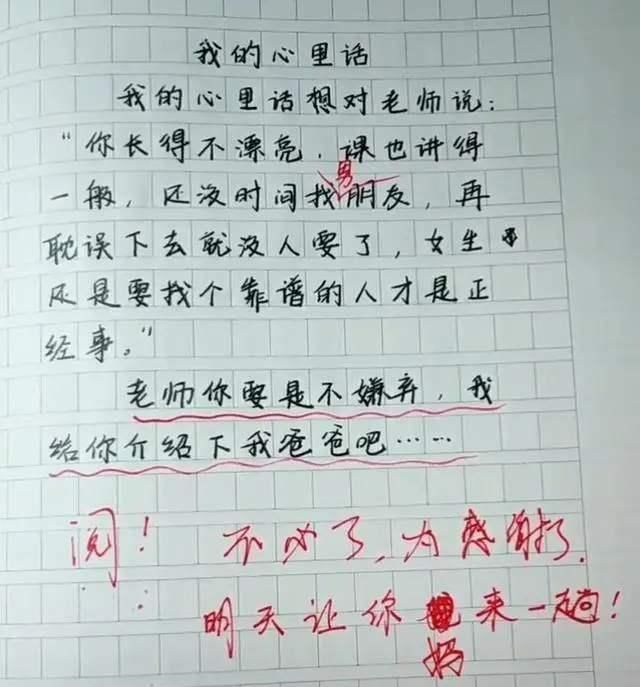 我的心里话
我的心里话想对老师说:
“你长得不漂亮,课也讲得
一般,还没时间找男朋友,再
耽误下去就没人要了,女生
还是要找个靠谱的人才是正
经事。”
老师你要是不嫌弃,我
给你介绍下我爸爸吧……
阅! 不必了,太感谢了.
明天让你妈来一趟!